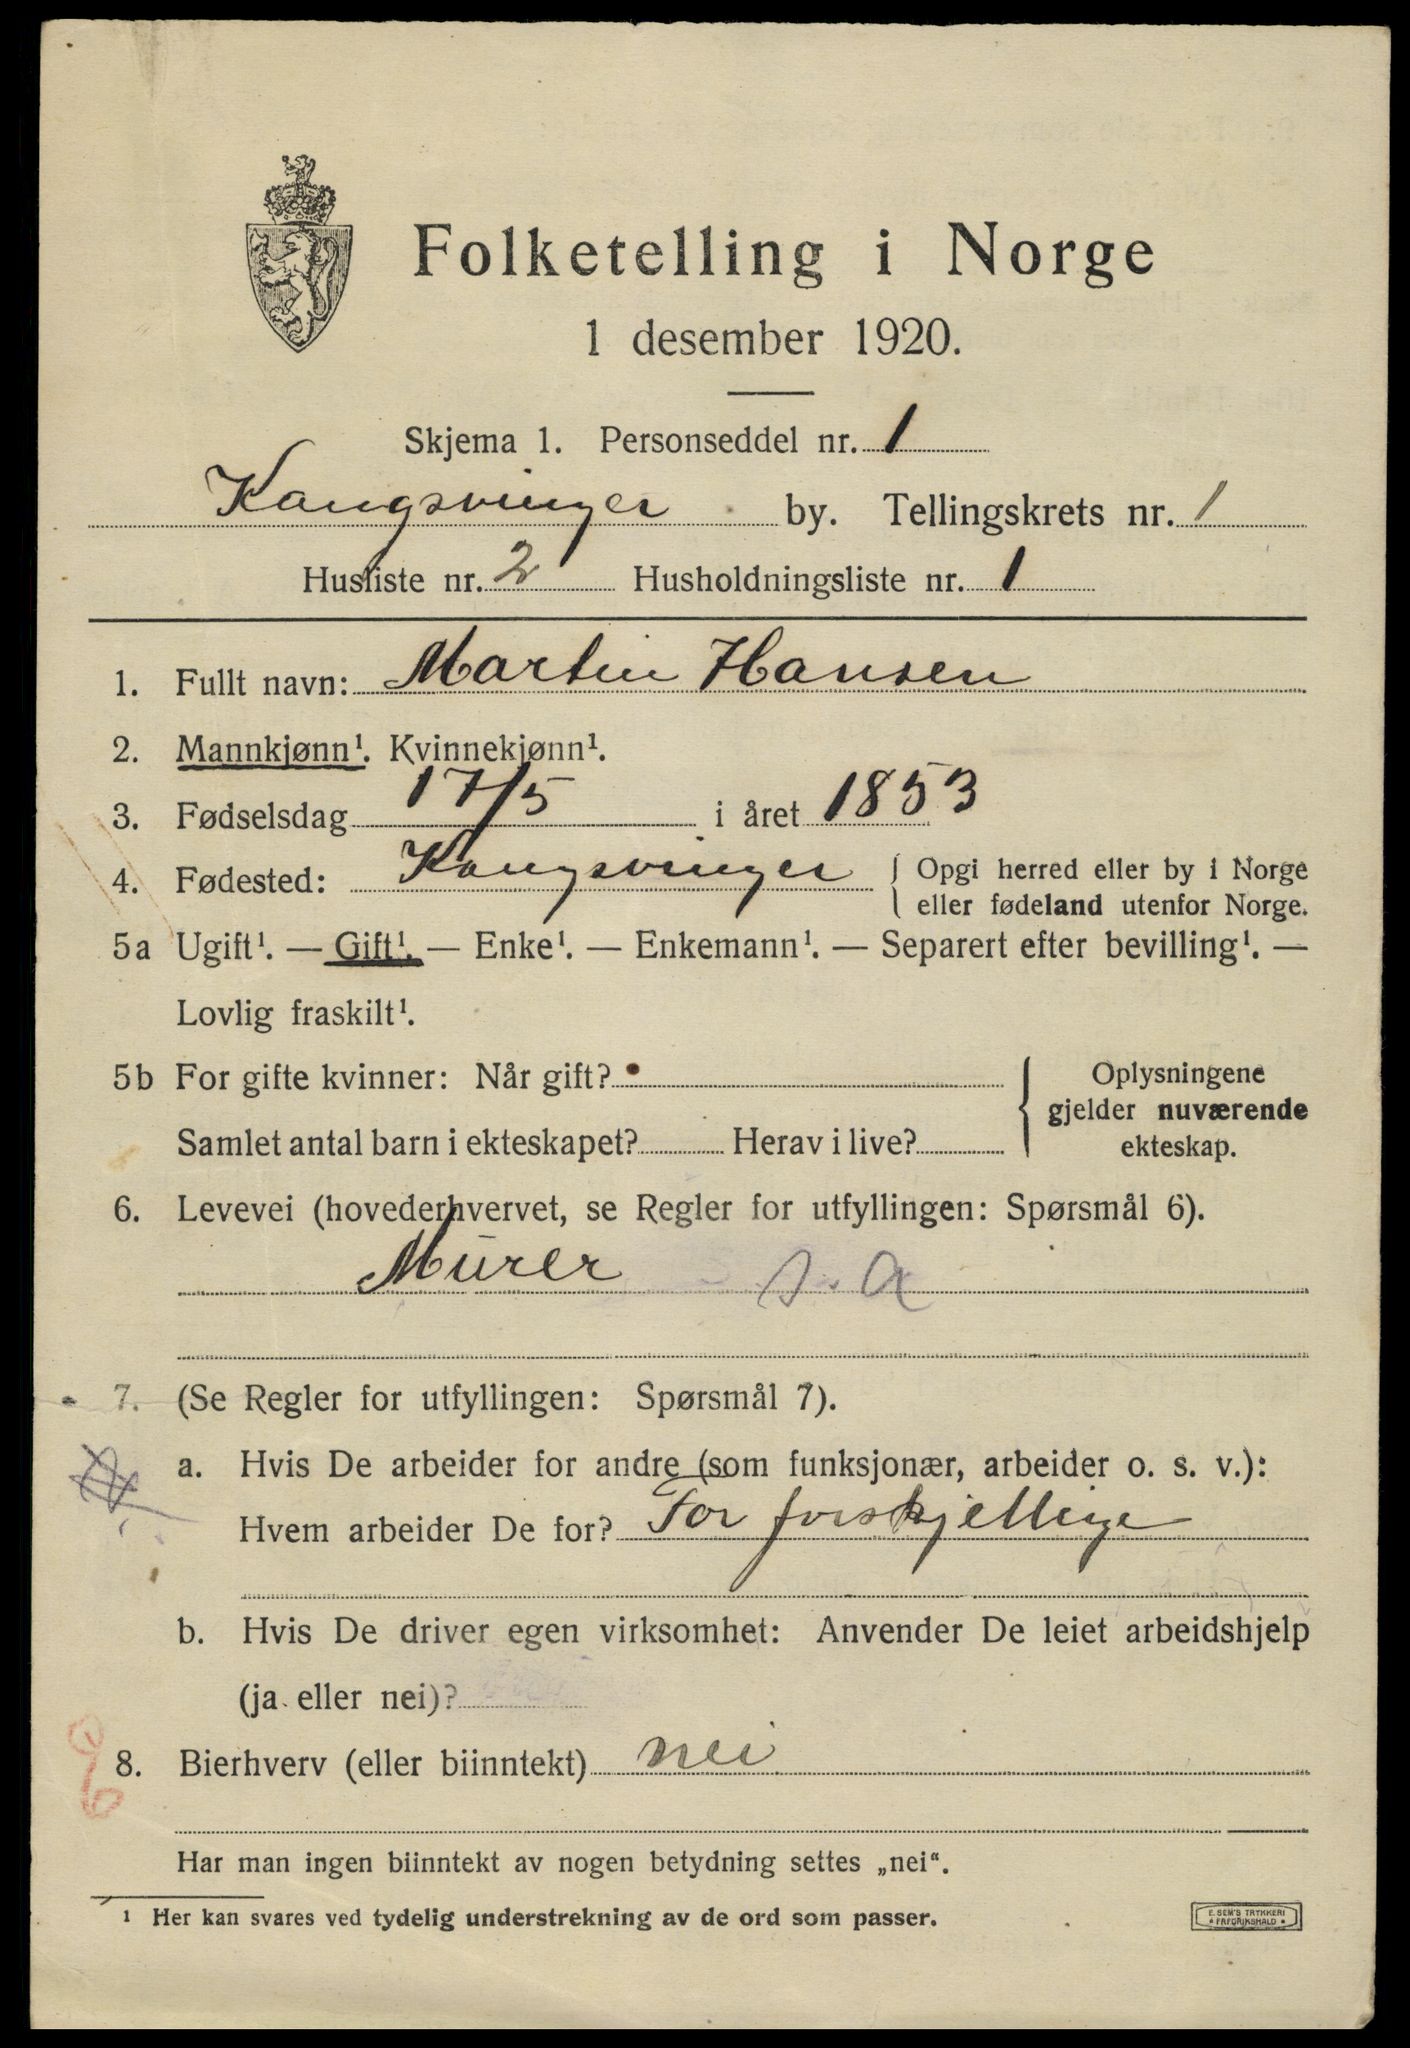 Folketelling i Norge
1 desember 1920.
Skjema 1. Personseddel nr. 1
Kangsvinger by. Tellingskrets nr. 1
Husliste nr. 2 Husholdningsliste nr. 1
1. Fullt navn: Martin Hansen
2. Mannkjønn¹. Kvinnekjønn¹.
3. Fødselsdag 17/5 i året 1853
4. Fødested: Kongsvinger { Opgi herred eller by i Norge
eller fødeland utenfor Norge.
5a Ugift¹. — Gift¹. — Enke¹. — Enkemann¹. — Separert efter bevilling¹. —
Lovlig fraskilt¹.
5b For gifte kvinner: Når gift?
Samlet antal barn i ekteskapet? Herav i live?
Oplysningene
gjelder nuværende
ekteskap.
6. Levevei (hovederhvervet, se Regler for utfyllingen: Spørsmål 6).
Murer s. a
7. (Se Regler for utfyllingen: Spørsmål 7).
a. Hvis De arbeider for andre (som funksjonær, arbeider o. s. v.):
Hvem arbeider De for? For forskjellige
b. Hvis De driver egen virksomhet: Anvender De leiet arbeidshjelp
(ja eller nei)?
8. Bierhverv (eller biinntekt) nei
Har man ingen biinntekt av nogen betydning settes „nei“.
¹ Her kan svares ved tydelig understrekning av de ord som passer.
E. SEM'S TRYKKERI
FREDRIKSHALD